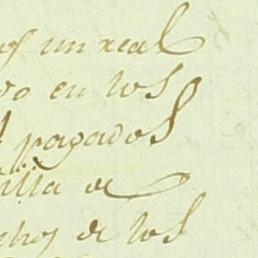 os un real
vo en los
pagados
illa de
chos de los